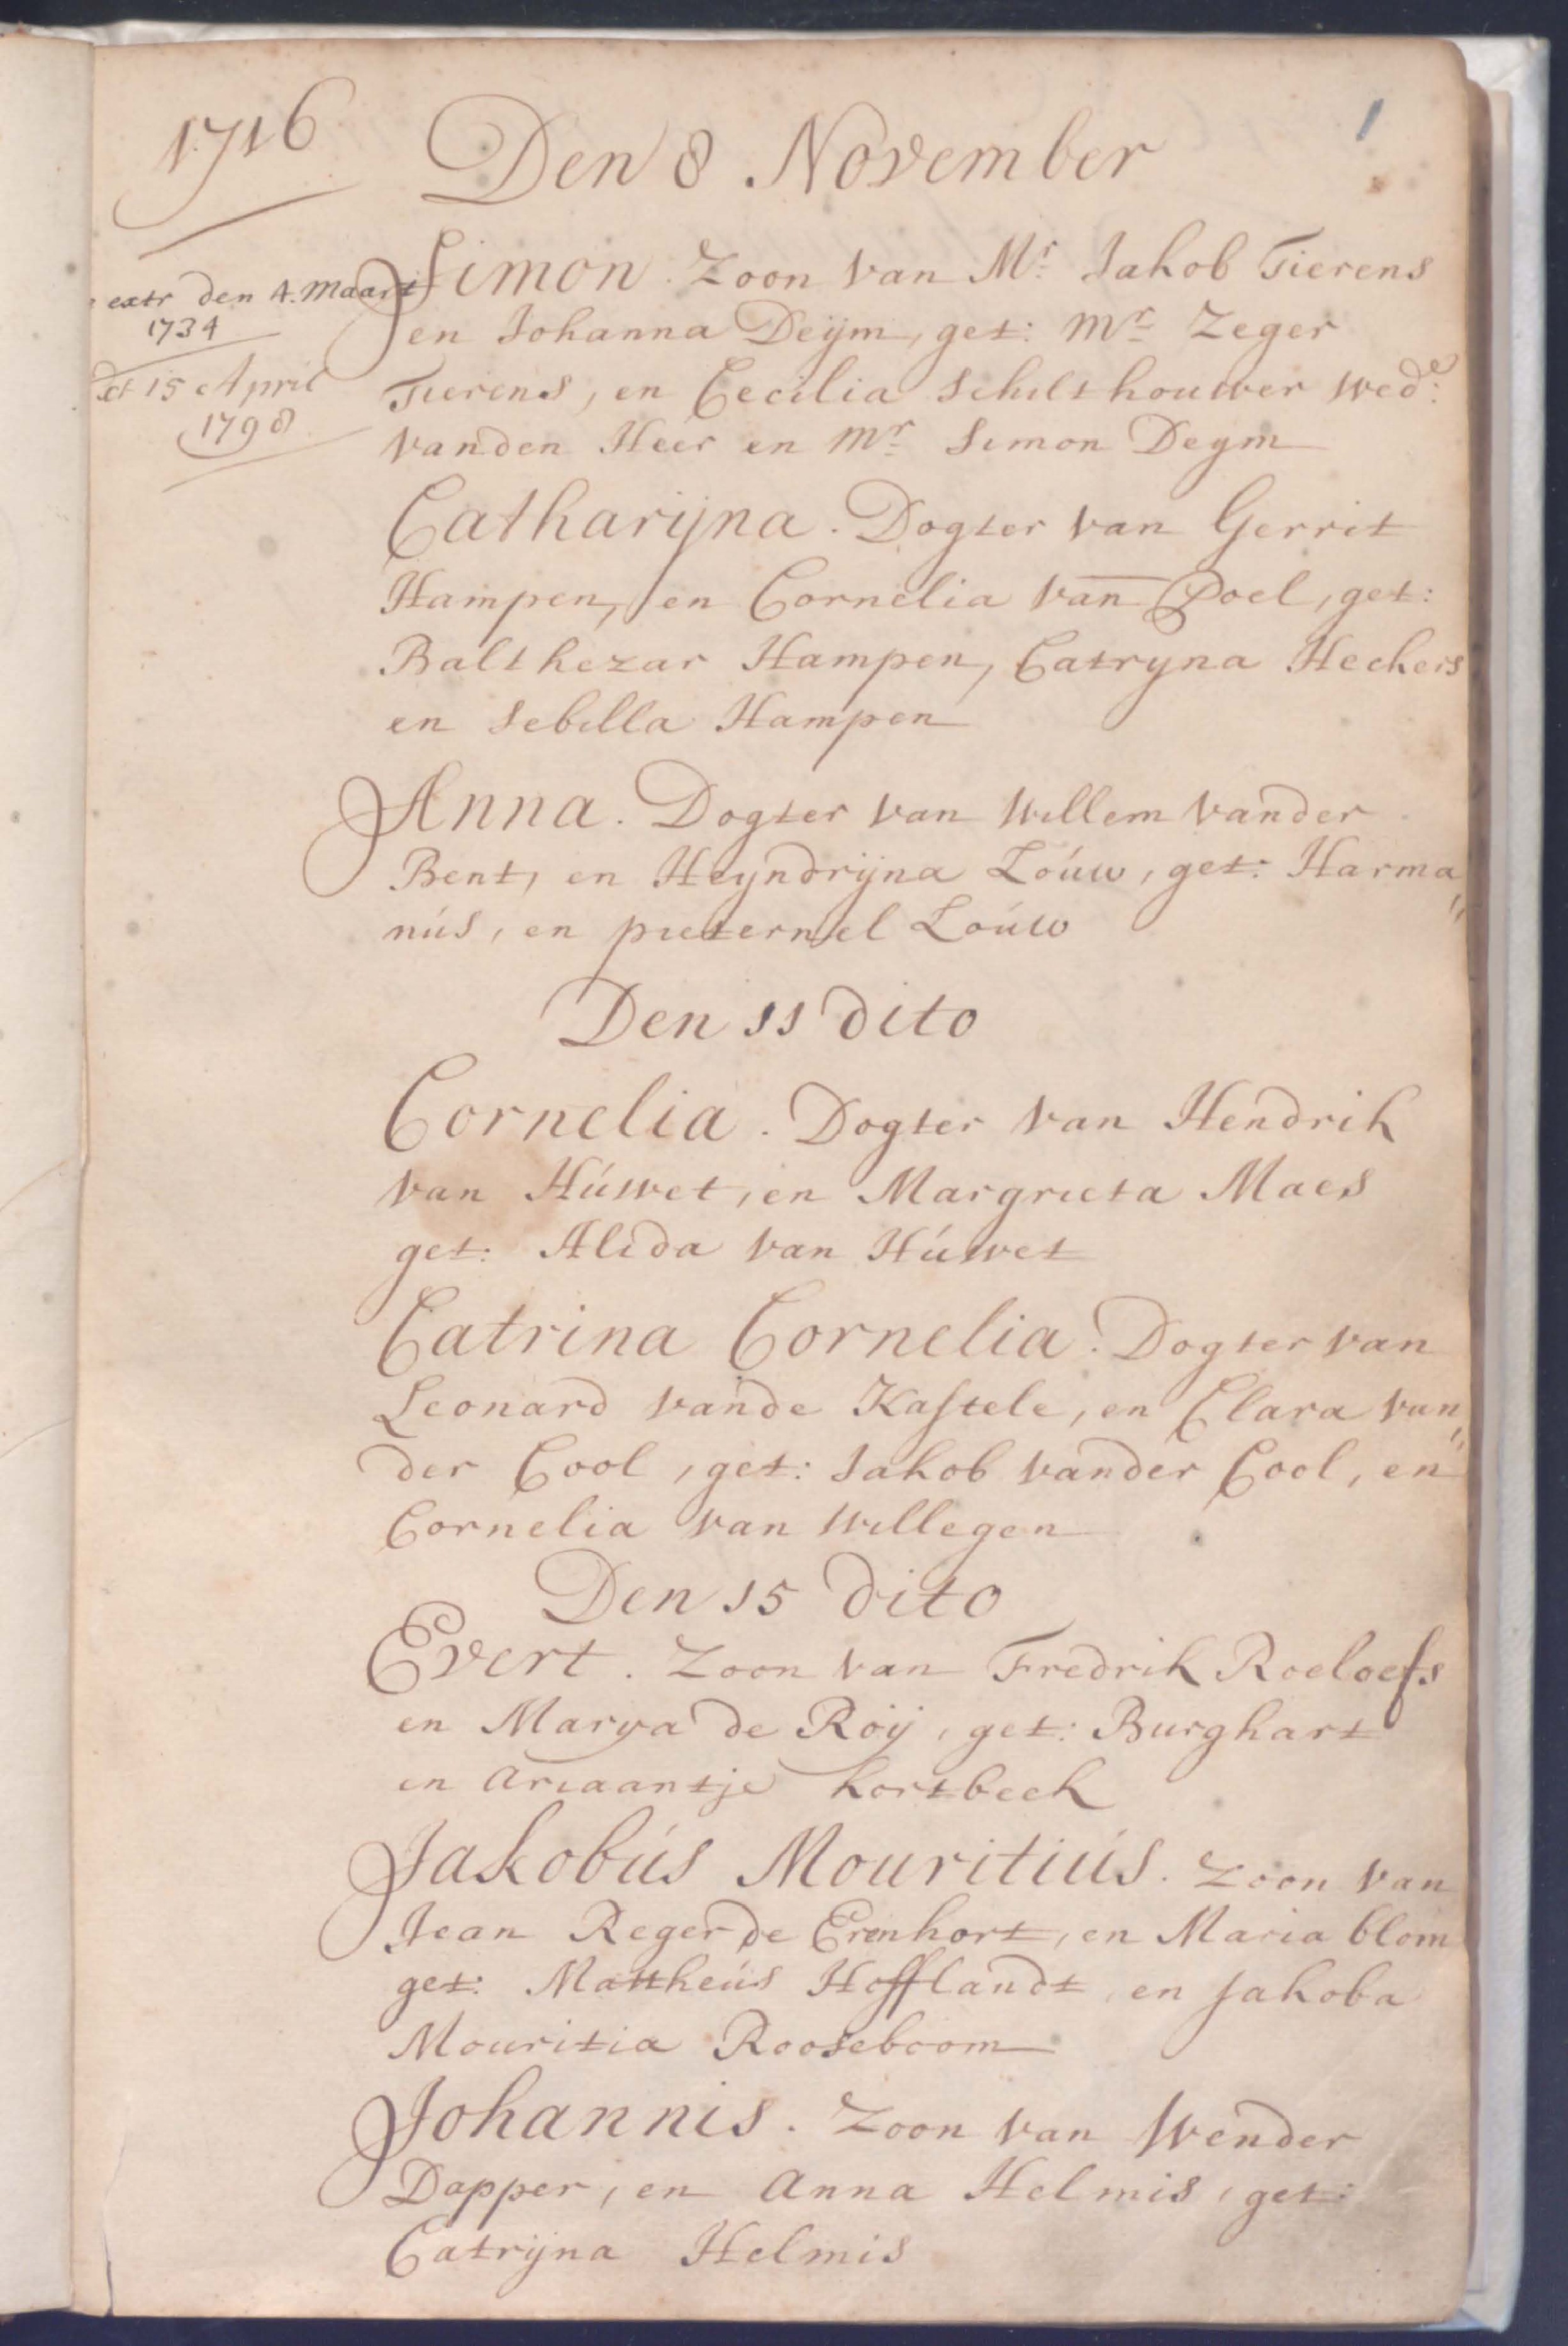 1716
1
Den 8 November
extr den 4. Maart
1734
15 April
1798
Simon. Zoon van Mr. Jakob Tierens
en Johanna Deijm, get: Mr. Zeger
Tierens, en Cecilia Schilthouwer wede:
vanden Heer en Mr. Simon Deym
Catharijna. Dogter van Gerrit
Hampen, en Cornelia van Poel, get:
Balthezar Hampen, Catryna Heckers
en Sebilla Hampen
Anna. Dogter van Willem vander
Bent, en Heyndrijna Loúw, get: Harma„
nús, en pieternel Loúw
Den 11 dito
Cornelia. Dogter van Hendrik
van Húwet, en Margrieta Maes
get: Alida van Húwet
Catrina Cornelia. Dogter van
Leonard vande Kastele, en Clara van„
der Cool, get: Jakob vander Cool, en
Cornelia van Willegen
Den 15 dito
Evert. Zoon van Fredrik Roeloefs
en Marya de Roij, get: Burghart
en Ariaantje kortbeek
Jakobús Mouritiús. Zoon van
Jean Reger de Erenhort, en Maria blom
get: Mattheús Hofflandt, en Jakoba
Mouritia Rooseboom
Johannis. Zoon van Wender
Dapper, en Anna Helmis, get:
Catrijna Helmis